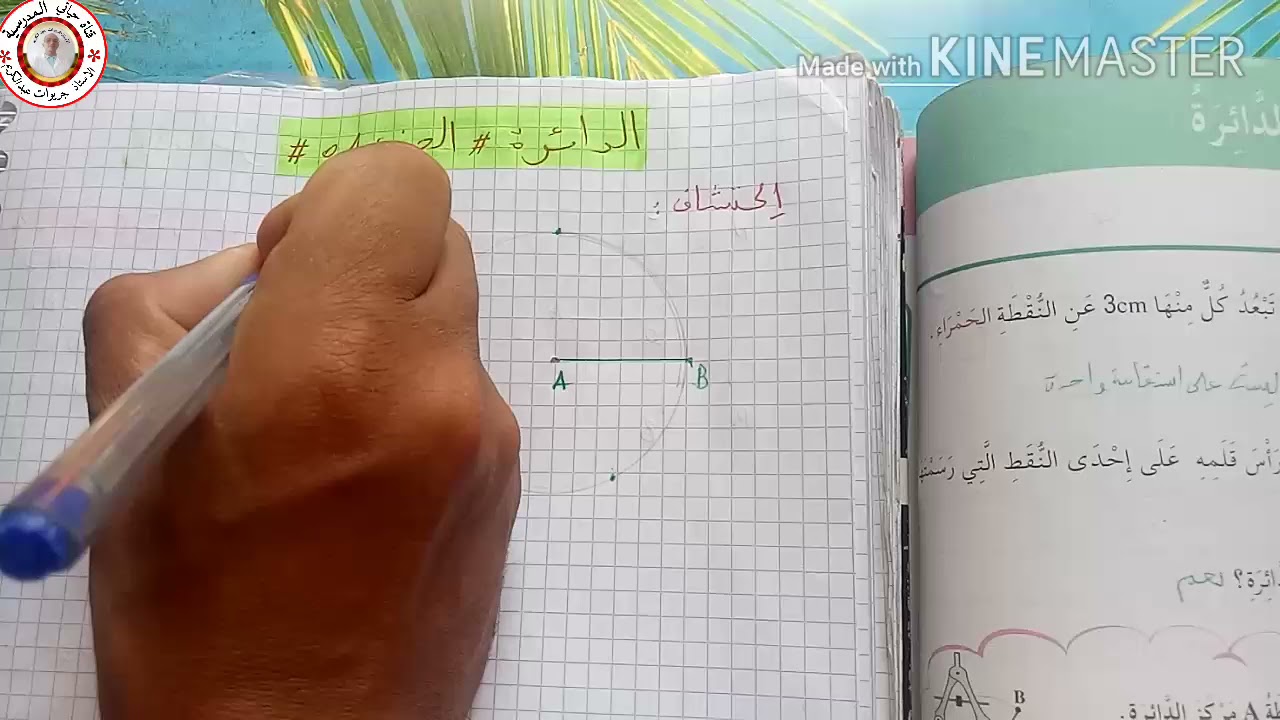 قناة حياتي المدرسية
الأستاذ جريوات عبدالكريم
Made with KINEMASTER
الدائرة #
#
إكتشاف :
A
B
الدَّائِرَةُ
تَبْعُدُ كُلٌّ مِنْهَا 3cm عَنِ النُّقْطَةِ الحَمْرَاءِ.
ليست على استقامة واحدة
رَأْسَ قَلَمِهِ عَلَى إِحْدَى النُّقَطِ الَّتِي
نعم
B
A مَرْكَزُ الدَّائِرَةِ.